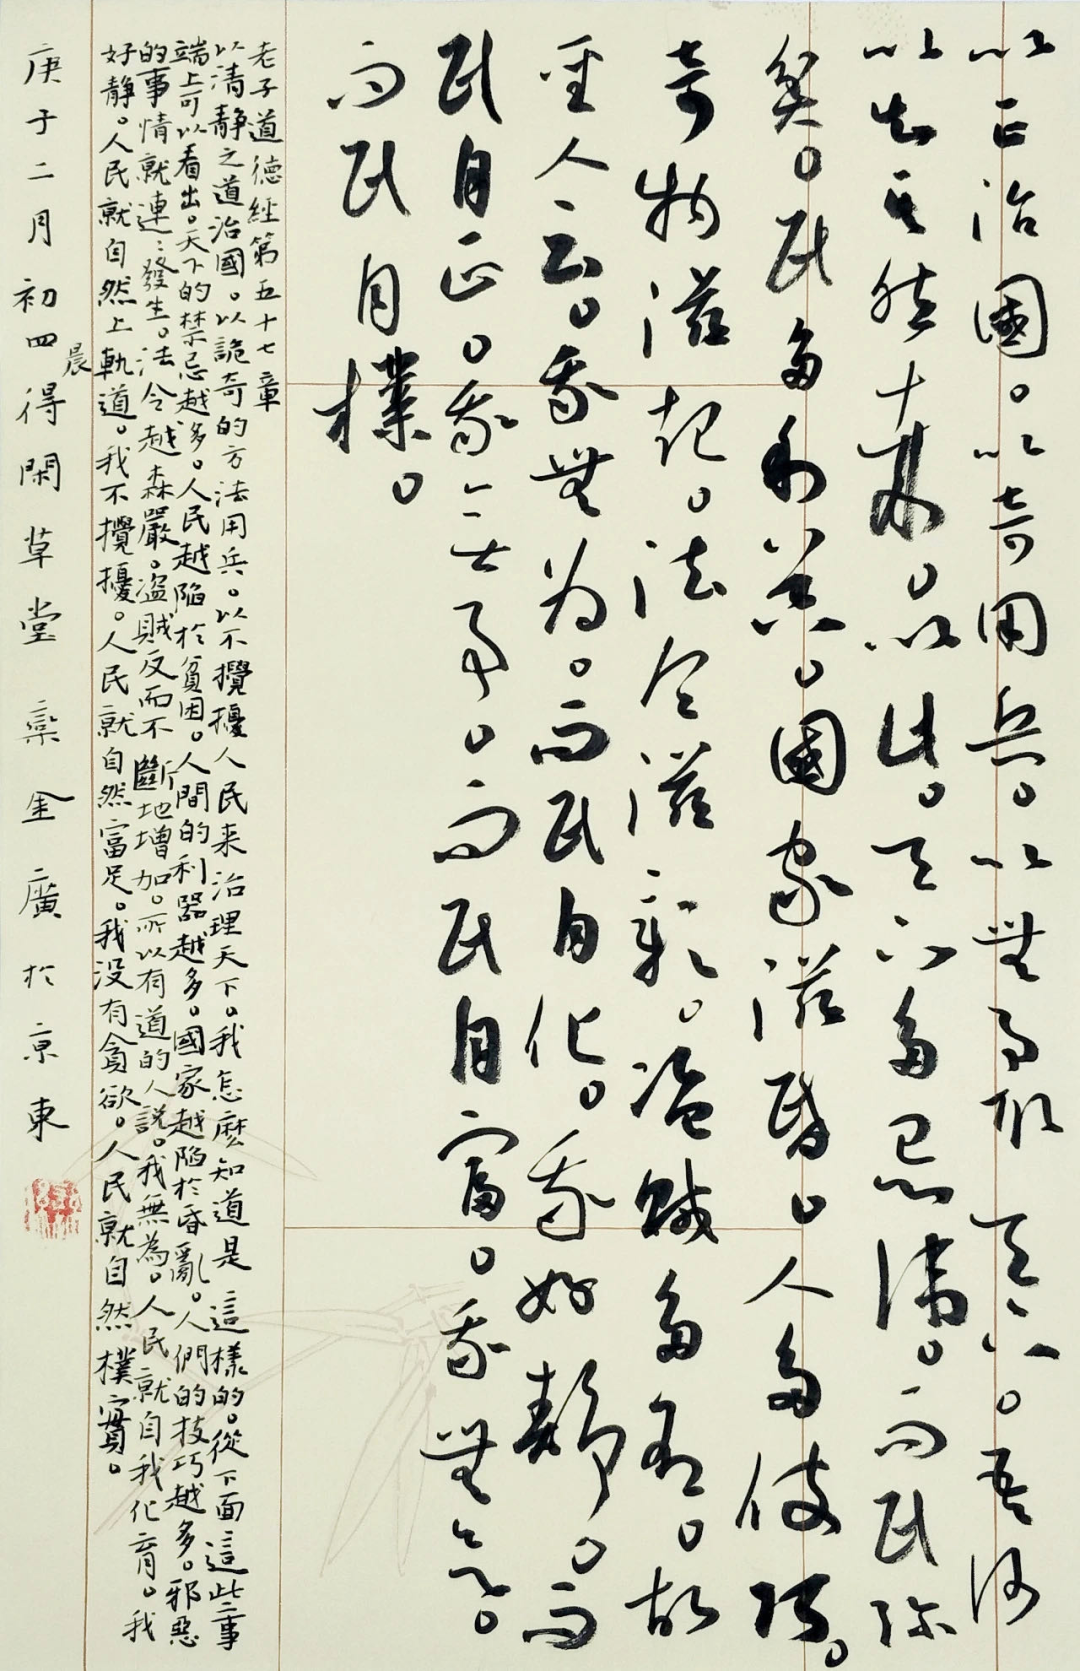 以正治國。以奇用兵。以無事取天下。吾何
以知其然哉。以此。天下多忌諱。而民弥
貧。民多利器。國家滋昏。人多伎巧。
奇物滋起。法令滋彰。盗賊多有。故
聖人云。我無为。而民自化。我好静。而
民自正。我无事。而民自富。我無欲。
而民自樸。
老子道德經第五十七章
以清静之道治國。以詭奇的方法用兵。以不攪擾人民来治理天下。我怎麽知道是這樣的。從下面這些事
端上可以看出。天下的禁忌越多。人民越陷於貧困。人間的利器越多。國家越陷於昏亂。人們的技巧越多。邪惡
的事情就連連發生。法令越森嚴。盗賊反而不斷地增加。所以有道的人説。我無為。人民就自我化育。我
好静。人民就自然上軌道。我不攪擾。人民就自然富足。我没有貪欲。人民就自然樸實。
庚子二月初四晨得閑草堂 欒金廣於京東